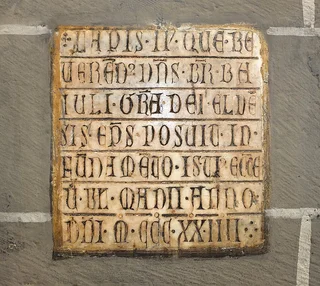 +LAPIS·IP·QUE·BE
UEREND9·DNS·BR·BA
IULI·GRA·DEI·ELVE
SIS·EPS·POSUIT·IN·
FUNDAMETO·ISTI·ECCE
U·KL·MADII·ANNO
DNI·M·CCC·XX·IIII·